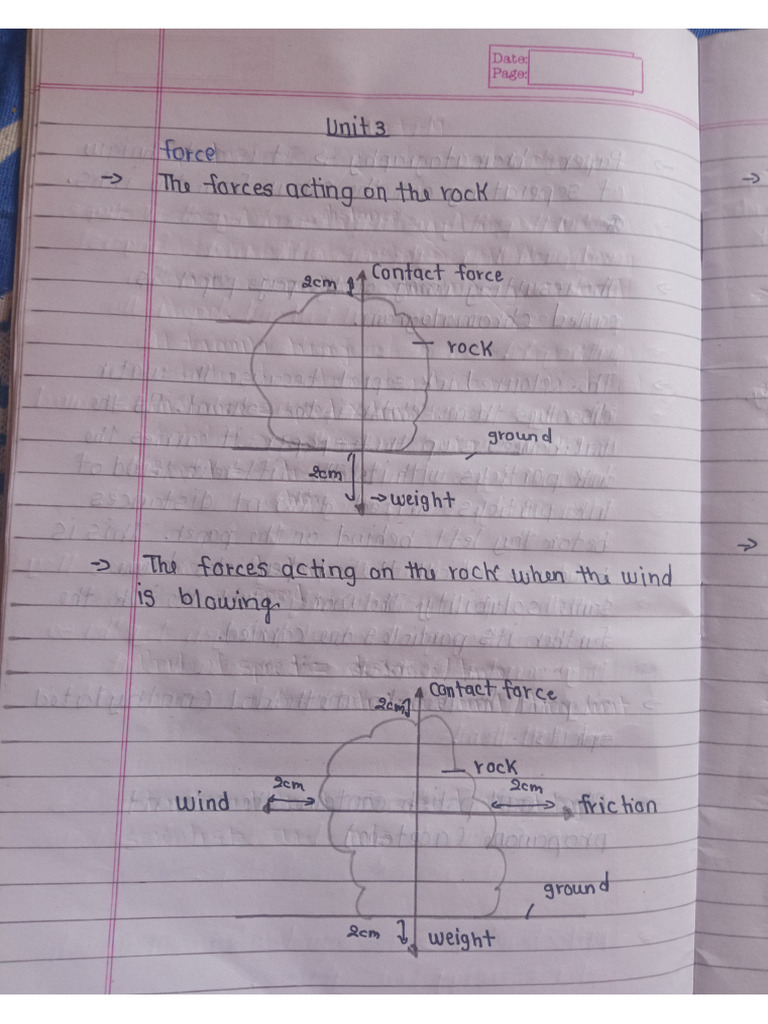 Date:
Page:
Unit 3
force
→ The forces acting on the rock
2cm
Contact force
rock
ground
2cm
→ weight
→ The forces acting on the rock when the wind
is blowing.
Contact force
2cm
rock
2cm
2cm
wind
friction
ground
2cm
weight